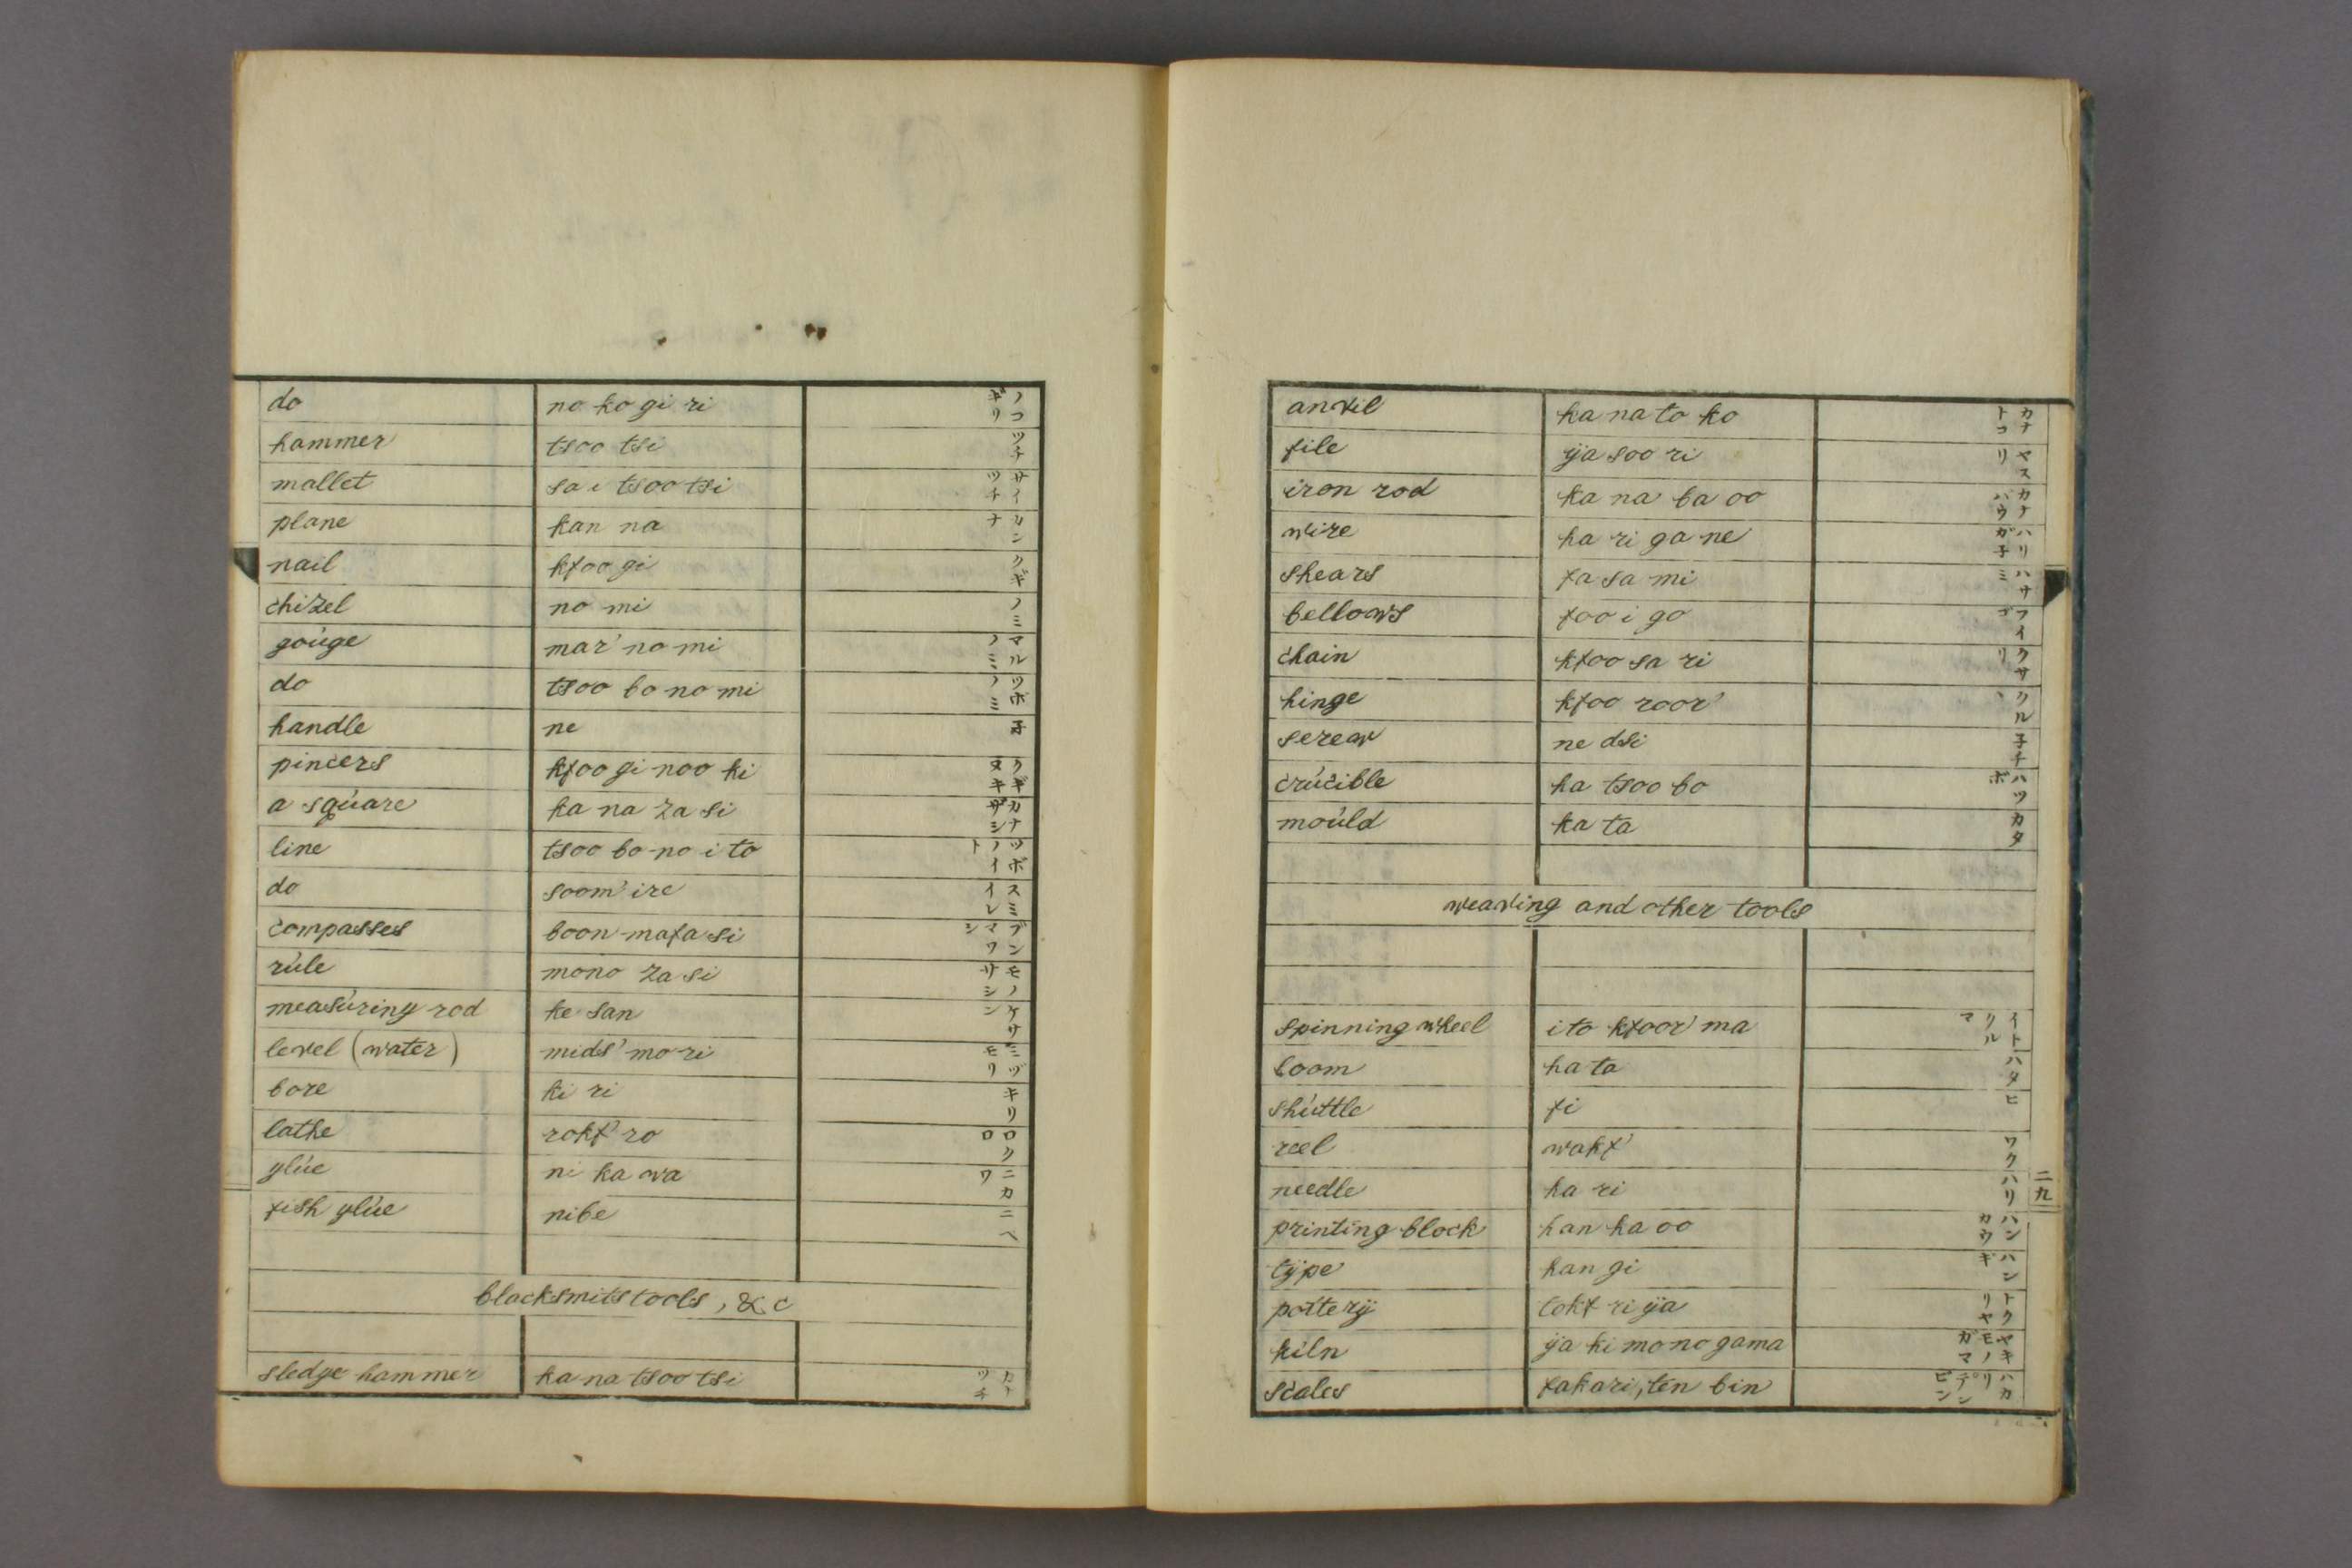 do no ko gi ri ノコギリ
hammer tsoo tsi ツチ
mallet sa i tsoo tsi サイツチ
plane kan na カンナ
nail kfoo gi クギ
chizel no mi ノミ
gouge mar' no mi マルノミ
do tsoo bo no mi ツボノミ
handle ne 子
pincers kfoo gi noo ki クギヌキ
a square ka na za si カナザシ
line tsoo bo no i to ツボノイト
do soom' ire スミイレ
compasses boon mafa si ブンマワシ
rule mono za si モノサシ
measuring rod ke san ケサン
level (water) mids' mo ri ミヅモリ
bore ki ri キリ
lathe rokf' ro ロクロ
glue ni ka wa ニカワ
fish glue nibe ニヘ
blacksmits tools, & c
sledge hammer ka na tsoo tsi カナツチ
anvil ka na to ko カナトコ
file ÿa soo ri ヤスリ
iron rod ka na ba oo カナバウ
wire ha ri ga ne ハリガ子
shears fa sa mi ハサミ
bellows foo i go フイゴ
chain kfoo sa ri クサリ
hinge kfoo roor' クルヽ
screw ne dsi 子チ
crucible ha tsoo bo ハツボ
mould ka ta カタ
weaving and other tools
spinning wheel ito kfoor' ma イトクルマ
loom ha ta ハタ
shuttle fi ヒ
reel wakf' ワク
needle ha ri ハリ
二九
printing block han ka oo ハンカウ
tÿpe han gi ハンギ
potterÿ tokf ri ÿa トクリヤ
kiln ÿa ki mo no gama ヤキモノガマ
scales fakari, ten bin ハカリテンビン